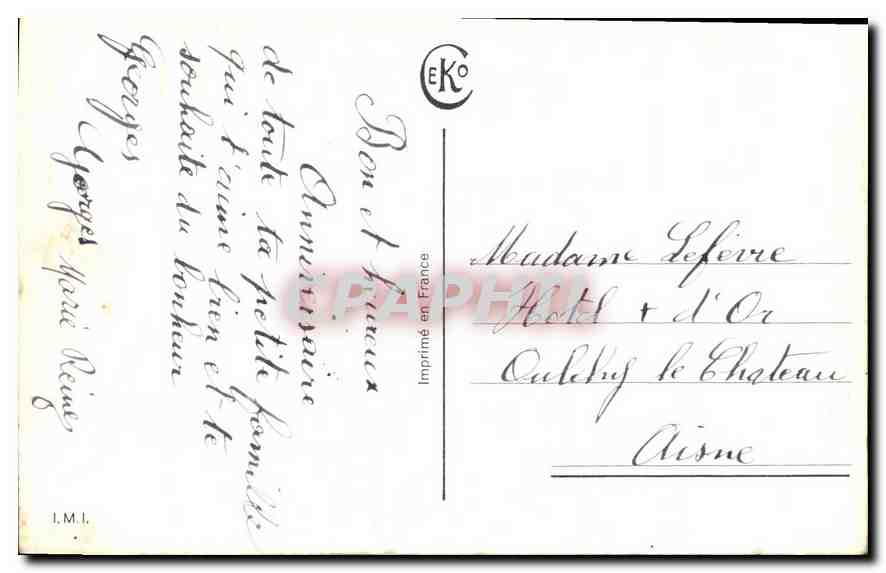 Bon et heureux
Anniversaire
de toute ta petite famille
qui t'aime bien et te
souhaite du bonheur
Georges
Georges Marie Reine
CEKO
Imprimé en France
Madame Lefèvre
Hotel + d'Or
Oulchy le Chateau
Aisne
I.M.I.
CPAPHIL